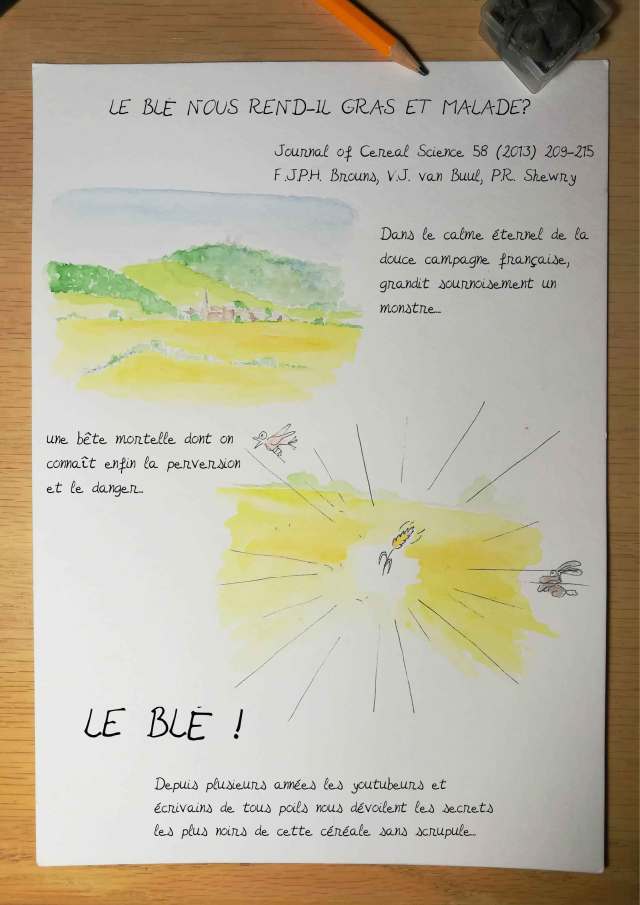 LE BLÉ NOUS REND-IL GRAS ET MALADE?
Journal of Cereal Science 58 (2013) 209-215
F.J.P.H. Brouns, V.J. van Buul, P.R. Shewry
Dans le calme éternel de la
douce campagne française,
grandit sournoisement un
monstre...
une bête mortelle dont on
connaît enfin la perversion
et le danger...
LE BLÉ !
Depuis plusieurs années les youtubeurs et
écrivains de tous poils nous dévoilent les secrets
les plus noirs de cette céréale sans scrupule...